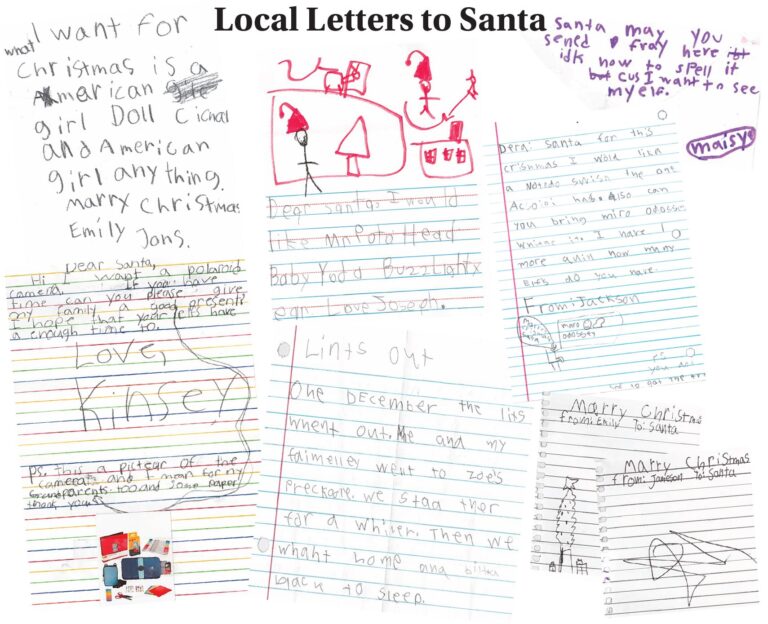 Local Letters to Santa
I want for
what
Christmas is a
American
girl Doll
and American
girl anything.
Marry Christmas
Emily Jans.
Santa may you
sened fray here
idk how to spell it
but cus I want to see
my elf.
maisy
Dear Santa, I would
like Mr Poto Head
Baby Yoda Buzz Light
ear Love Joseph.
Dera: Santa for this
crishmas I wold like
a
can
you bring miro odosse
I have 10
more
do you have.
From: Jackson
Dear Santa,
Hi I want a polaroid
camera. If you have
time can you please give
my family a good present
I hope that your elfs have
a enough time to.
LOVE,
Kinsey
Ps. this a pictear of the
camera and I mean for my
Grandparents too and
thank you
Lints Out
One DECEMBER the lits
whent out. Me and my
faimelley went to zoe's
preckare. we staa ther
for a whiler. Then we
whaht home and
back to sleep.
Marry Christmas
from: Emily To: Santa
Marry Christmas
from: Jameson To: Santa